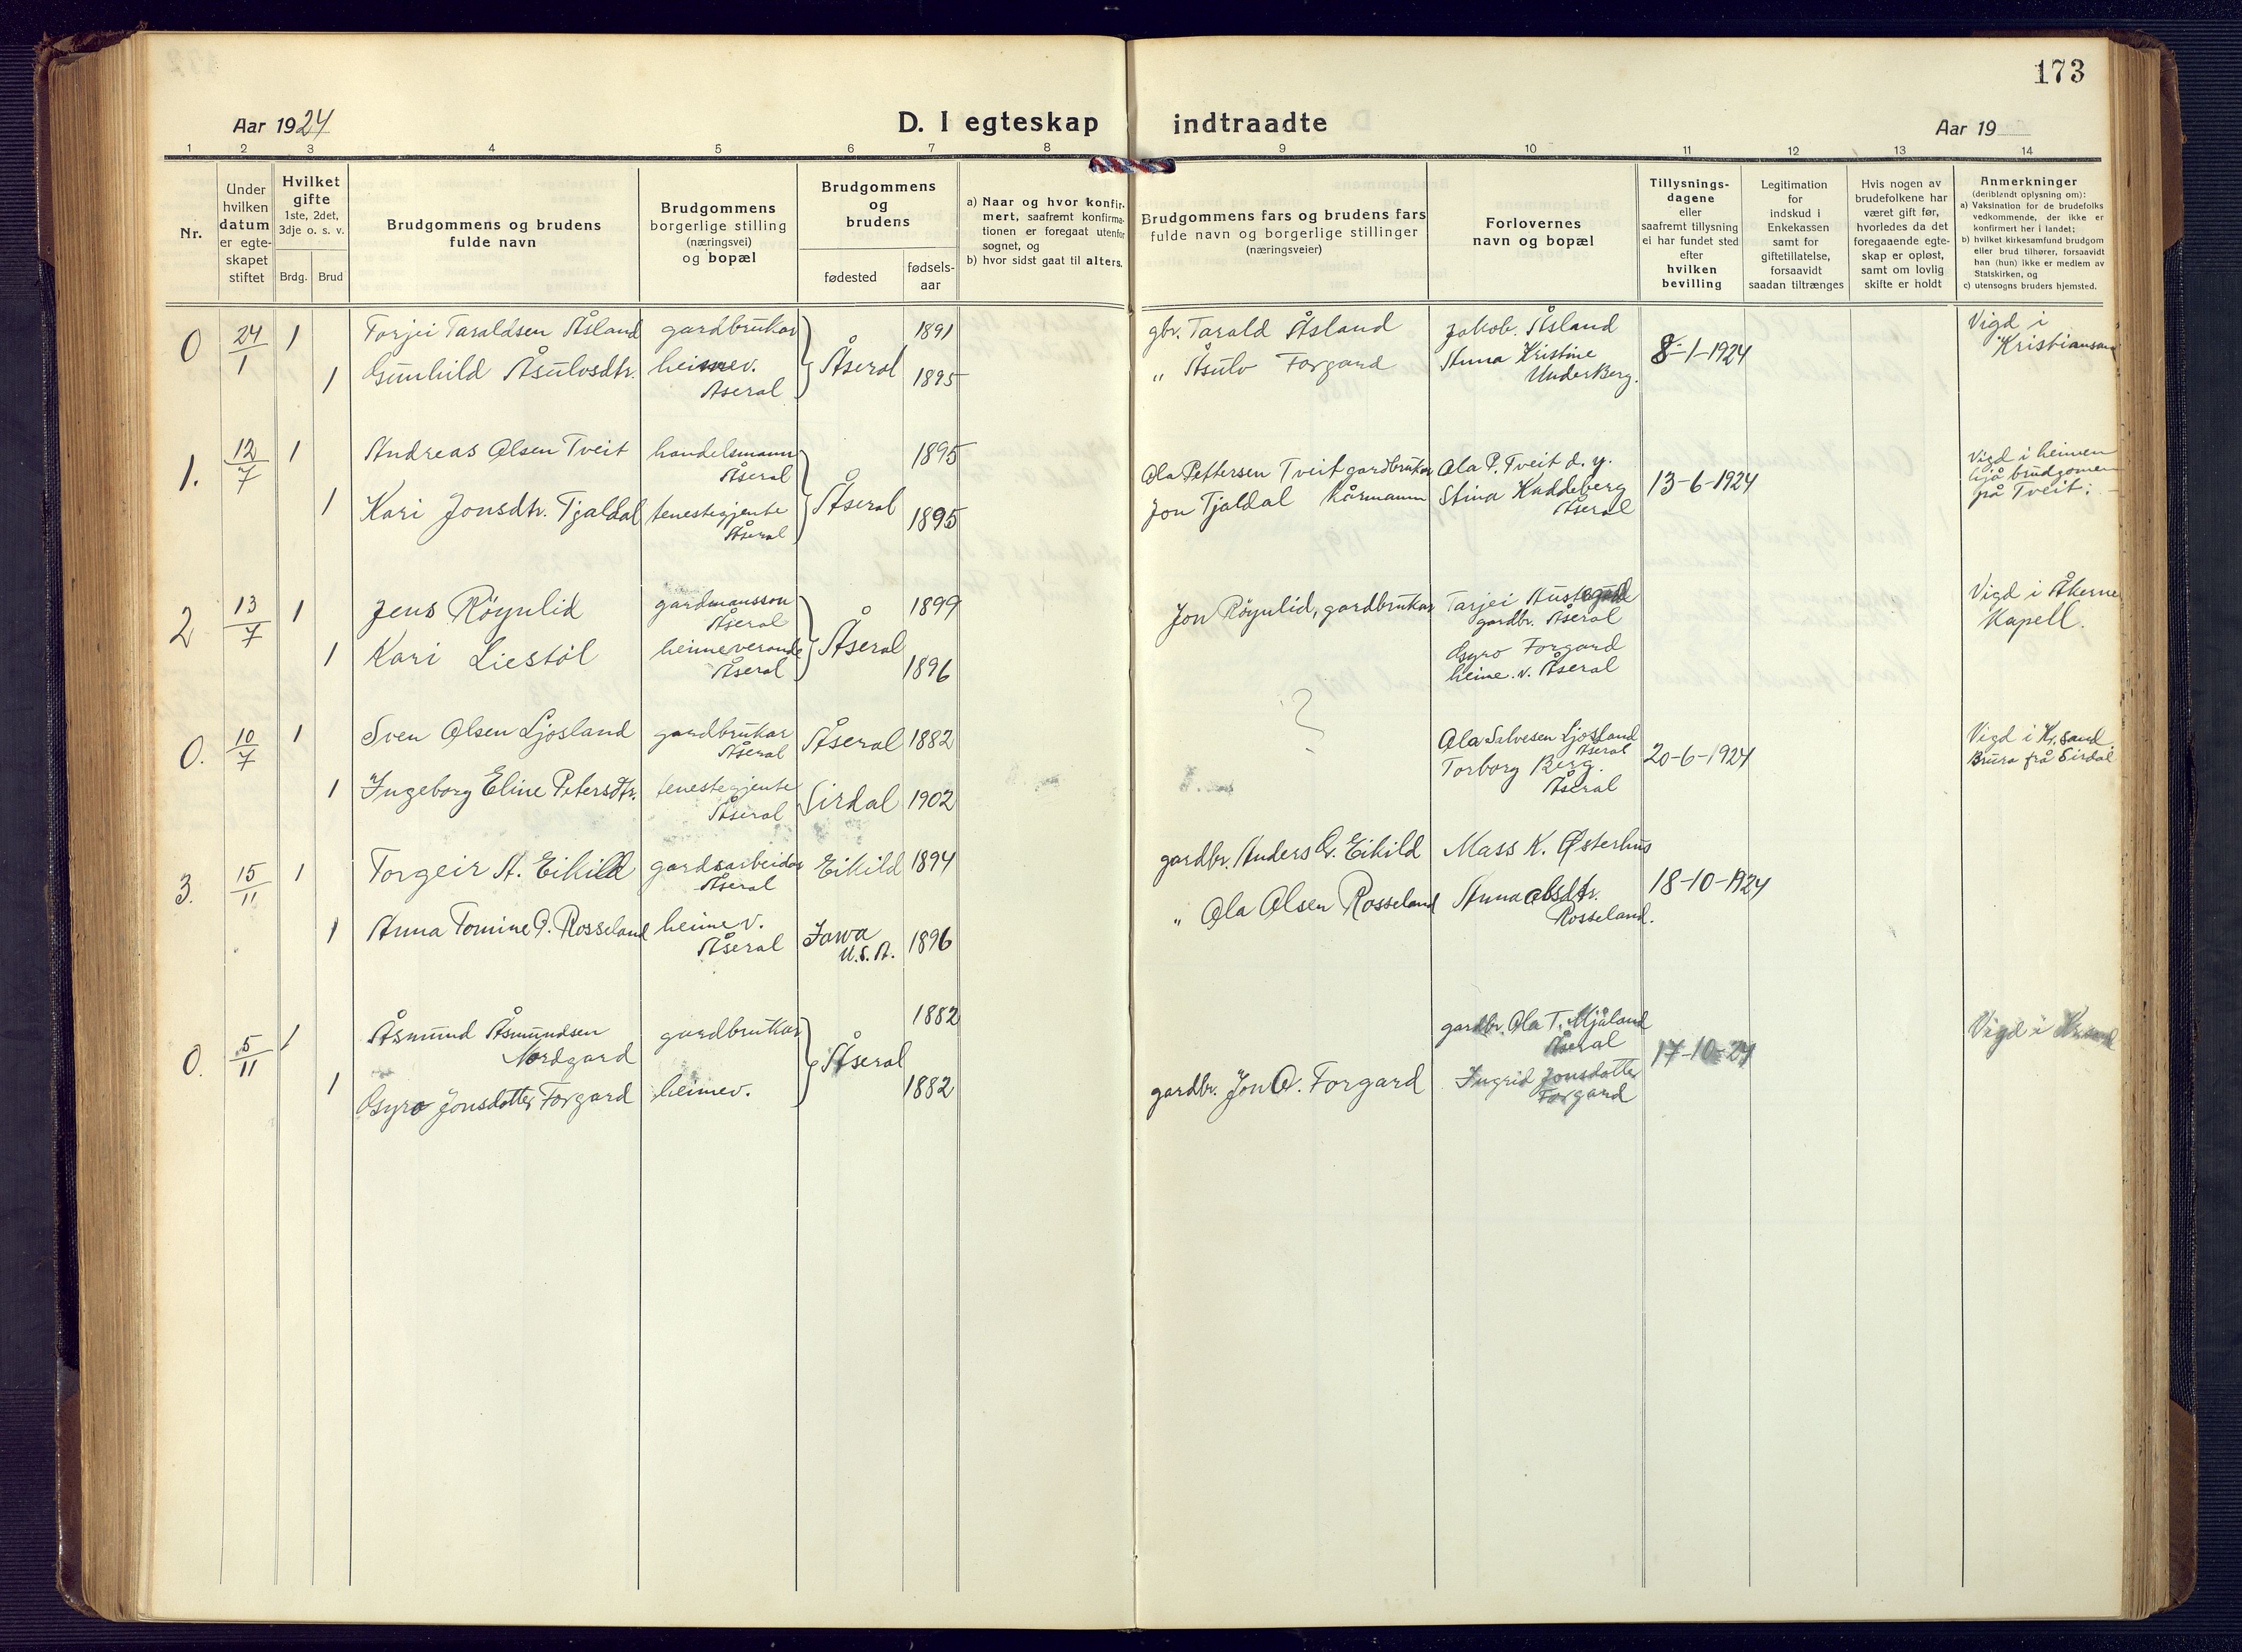 173
Aar 1924
D. I egteskap indtraadte
Aar 19
1
2
3
4
5
6
7
8
9
10
11
12
13
14
Nr.
Under
hvilken
datum
er egte-
skapet
stiftet
Hvilket
gifte
1ste, 2det,
3dje o. s. v.
Brdg.
Brud
Brudgommens og brudens
fulde navn
Brudgommens
borgerlige stilling
(næringsvei)
og bopæl
Brudgommens
og
brudens
fødested
fødsels-
aar
a) Naar og hvor konfir-
mert, saafremt konfirma-
tionen er foregaat utenfor
sognet, og
b) hvor sidst gaat til alters.
Brudgommens fars og brudens fars
fulde navn og borgerlige stillinger
(næringsveier)
Forlovernes
navn og bopæl
Tillysnings-
dagene
eller
saafremt tillysning
ei har fundet sted
efter
hvilken
bevilling
Legitimation
for
indskud i
Enkekassen
samt for
giftetillatelse,
forsaavidt
saadan tiltrænges
Hvis nogen av
brudefolkene har
været gift før,
hvorledes da det
foregaaende egte-
skap er opløst,
samt om lovlig
skifte er holdt
Anmerkninger
(deriblandt oplysning om):
a) Vaksination for de brudefolks
vedkommende, der ikke er
konfirmert her i landet;
b) hvilket kirkesamfund brudgom
eller brud tilhører, forsaavidt
han (hun) ikke er medlem av
Statskirken, og
c) utensogns bruders hjemsted.
0
24/1
1
Torjei Taraldsen Åsland
gardbrukar
1891
gbr. Tarald Åsland
Jakob Åsland
8-1-1924
Vigd i
Kristiansand
1
Gunhild Åsulvsdtr.
heimev.
Åseral
Åseral
1895
" Åsulv Forgard
Anna Kristine
UnderBerg.
1.
12/7
1
Andreas Olsen Tveit
handelsmann
Åseral
1895
Ola Pettersen Tveit gardbrukar
Ola P. Tveit d. y.
13-6-1924
Vigd i heimen
hjå brudgomen
på Tveit.
1
Kari Jonsdtr. Tjaldal
tenestegjente
Åseral
Åseral
1895
Jon Tjaldal kårmann
Stina Kuddeberg
Åseral
2
13/7
1
Jens Röynlid
gardmansson
Åseral
1899
Jon Röynlid, gardbrukar
Tarjei Austegard
gardbr. Åseral
Vigd i Åknes
Kapell.
1
Kari Liestöl
heimeverande
Åseral
Åseral
1896
?
Gyro Forgard
heime.v. Åseral
0.
10/7
1
Sven Olsen Ljosland
gardbrukar
Åseral
Åseral
1882
Ola Salvesen Ljosland
Åseral
20-6-1924
Vigd i Kr.sand.
Brura frå Sirdal
1
Ingeborg Eline Petersdtr.
tenestegjente
Åseral
Sirdal
1902
Torborg Berg.
Åseral
3.
15/11
1
Torgeir A. Eikild
gardsarbeidar
Åseral
Eikild
1894
gardbr. Anders O. Eikild
Mass K. Østerhus
18-10-1924
1
Anna Tomine O. Rosseland
heimev.
Åseral
Iowa
U.S.A.
1896
" Ola Olsen Rosseland
Anna Olsdtr.
Rosseland.
0.
5/11
1
Åsmund Åsmundsen
Nordgard
gardbrukar
1882
gardbr. Ola T. Mjåland
Åseral
17-10-24
Vigd i Krsand
1
Gyro Jonsdotter Forgard
heimev.
Åseral
1882
gardbr. Jon O. Forgard
Ingrid Jonsdotter
Forgard